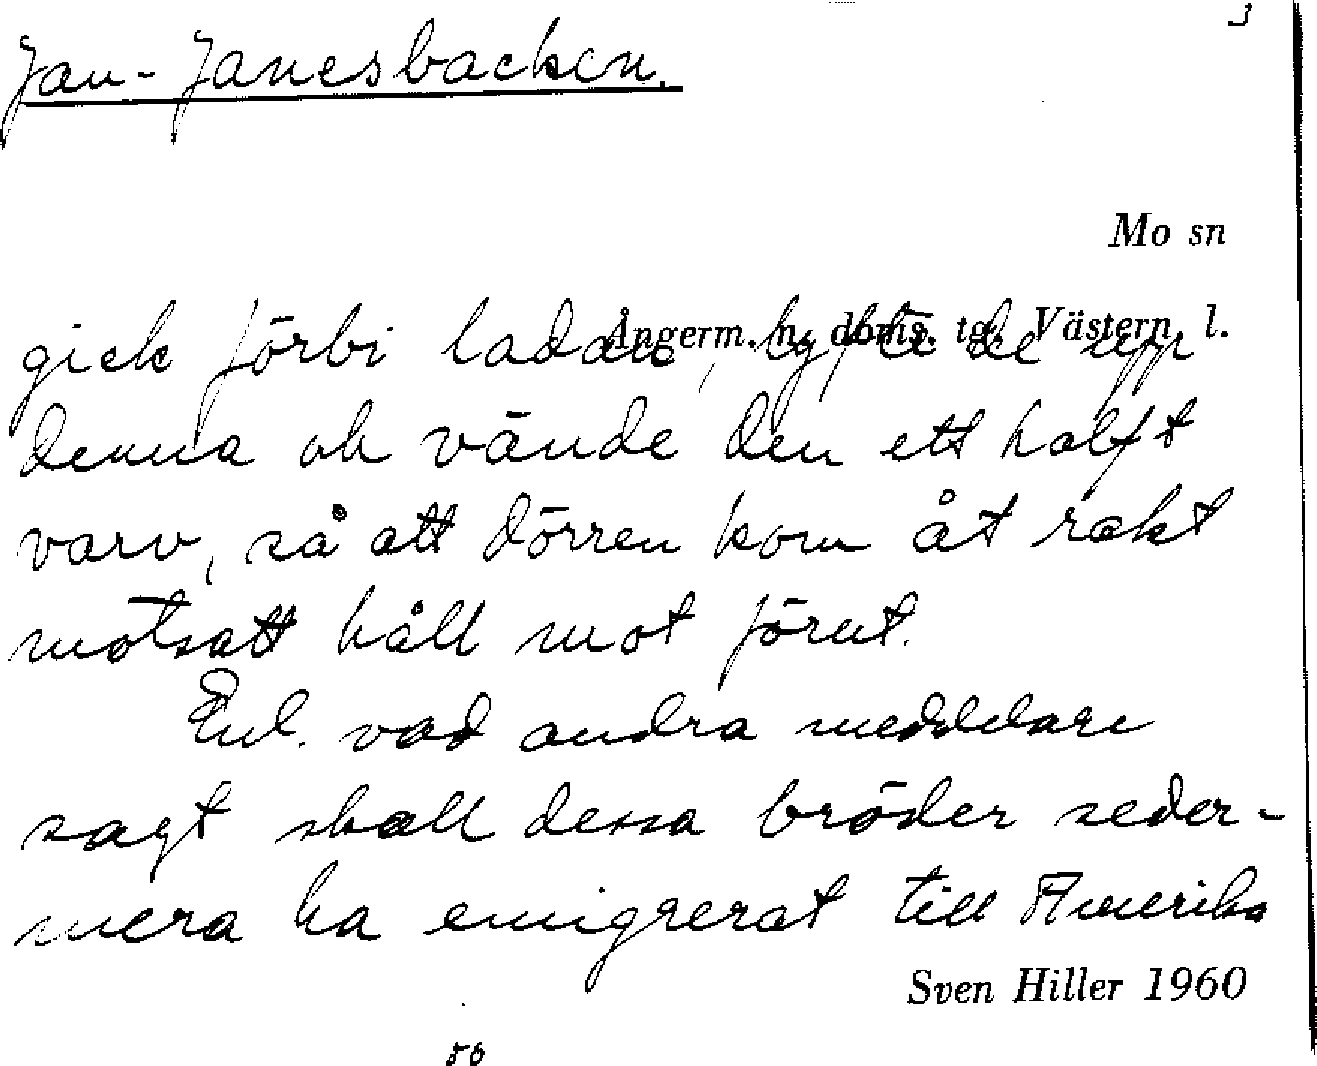 3
Jan-Janesbacken.
Mo sn
Ångerm. n. doms. tg. Västern. l.
gick förbi ladan, lyfte de upp
denna och vände den ett halft
varv, så att dörren kom åt rakt
motsatt håll mot förut.
Enl. vad andra meddelare
sagt skall dessa bröder seder-
mera ha emigrerat till Amerika
Sven Hiller 1960